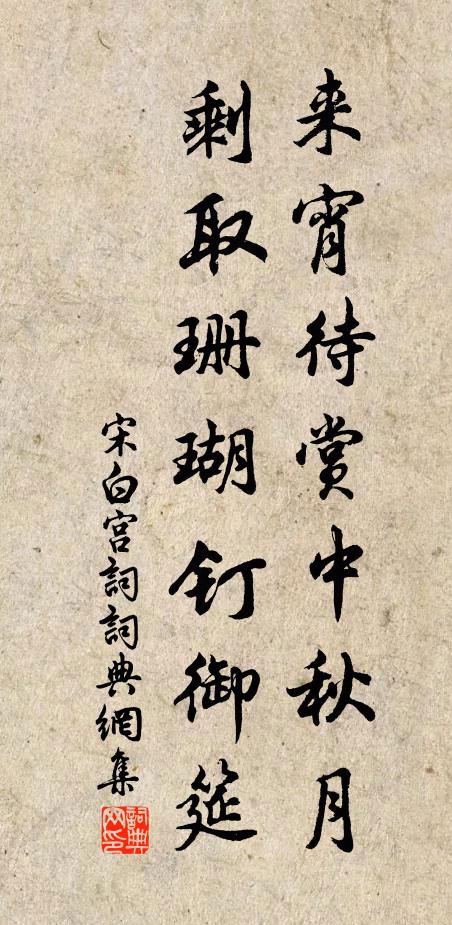 来宵待賞中秋月
剩取珊瑚釘御筵
宋白宮詞詞典網集
詞典网印